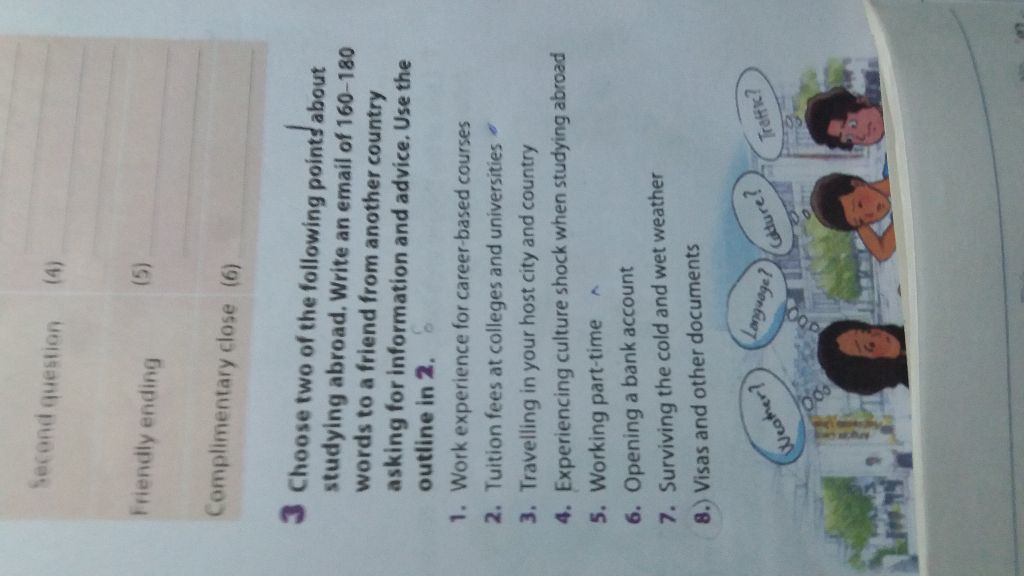 Second question (4)
Friendly ending (5)
Complimentary close (6)
3 Choose two of the following points about
studying abroad. Write an email of 160-180
words to a friend from another country
asking for information and advice. Use the
outline in 2.
1. Work experience for career-based courses
2. Tuition fees at colleges and universities
3. Travelling in your host city and country
4. Experiencing culture shock when studying abroad
5. Working part-time
6. Opening a bank account
7. Surviving the cold and wet weather
8. Visas and other documents
Weather?
Language?
Culture?
Traffic?